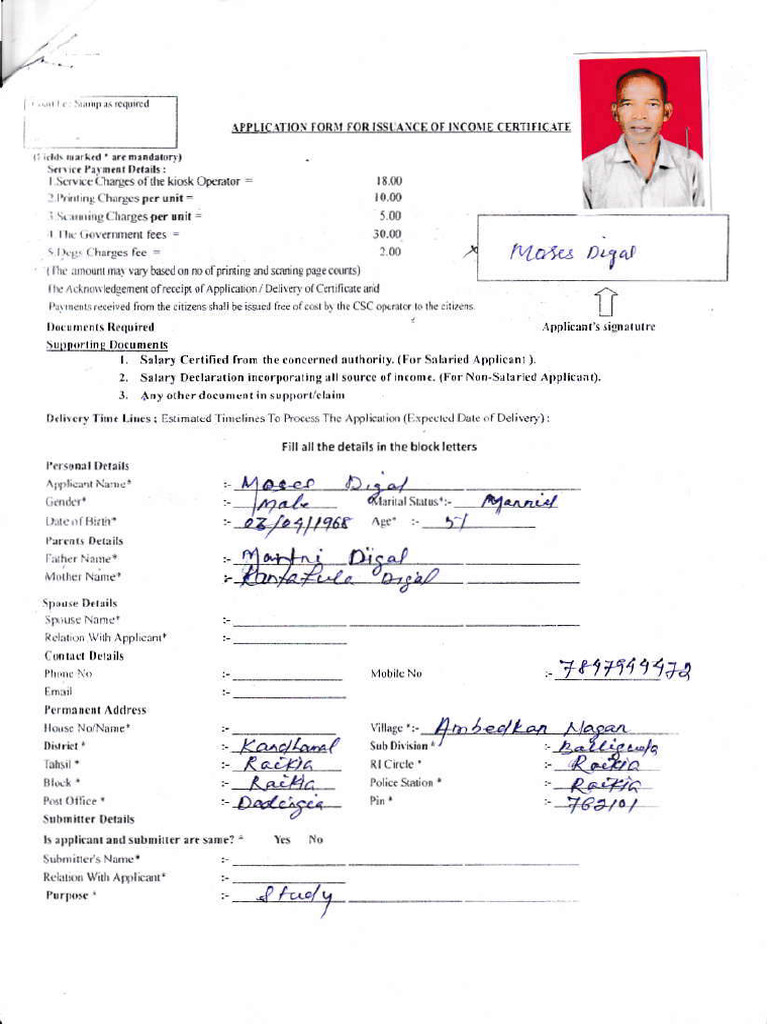 Court Fee Stamp as required
APPLICATION FORM FOR ISSUANCE OF INCOME CERTIFICATE
(Fields marked * are mandatory)
Service Payment Details :
1.Service Charges of the kiosk Operator = 18.00
2.Printing Charges per unit = 10.00
3.Scanning Charges per unit = 5.00
4.The Government fees = 30.00
5.Degs Charges fee = 2.00
(The amount may vary based on no of printing and scaning page counts)
The Acknowledgement of receipt of Application / Delivery of Certificate and
Payments received from the citizens shall be issued free of cost by the CSC operator to the citizens.
x Moses Digal
Applicant's signatutre
Documents Required
Supporting Documents
1. Salary Certified from the concerned authority. (For Salaried Applicant ).
2. Salary Declaration incorporating all source of income. (For Non-Salaried Applicant).
3. Any other document in support/claim
Delivery Time Lines ; Estimated Timelines To Process The Application (Expected Date of Delivery) :
Fill all the details in the block letters
Personal Details
Applicant Name* :- Moses Digal
Gender* :- Male Marital Status*:- Married
Date of Birth* :- 03/04/1968 Age* :- 51
Parents Details
Father Name* :- Martni Digal
Mother Name* :- Kantafula Digal
Spouse Details
Spouse Name* :-
Relation With Applicant* :-
Contact Details
Phone No :- Mobile No :- 7847944472
Email :-
Permanent Address
House No/Name* :- Village *:- Ambedkar Nagar
District * :- Kandhamal Sub Division * :- Balliguda
Tahsil * :- Raikia RI Circle * :- Raikia
Block * :- Raikia Police Station * :- Raikia
Post Office * :- Dadingia Pin * :- 762101
Submitter Details
Is applicant and submitter are same? * Yes No
Submitter's Name* :-
Relation With Applicant* :-
Purpose * :- Study